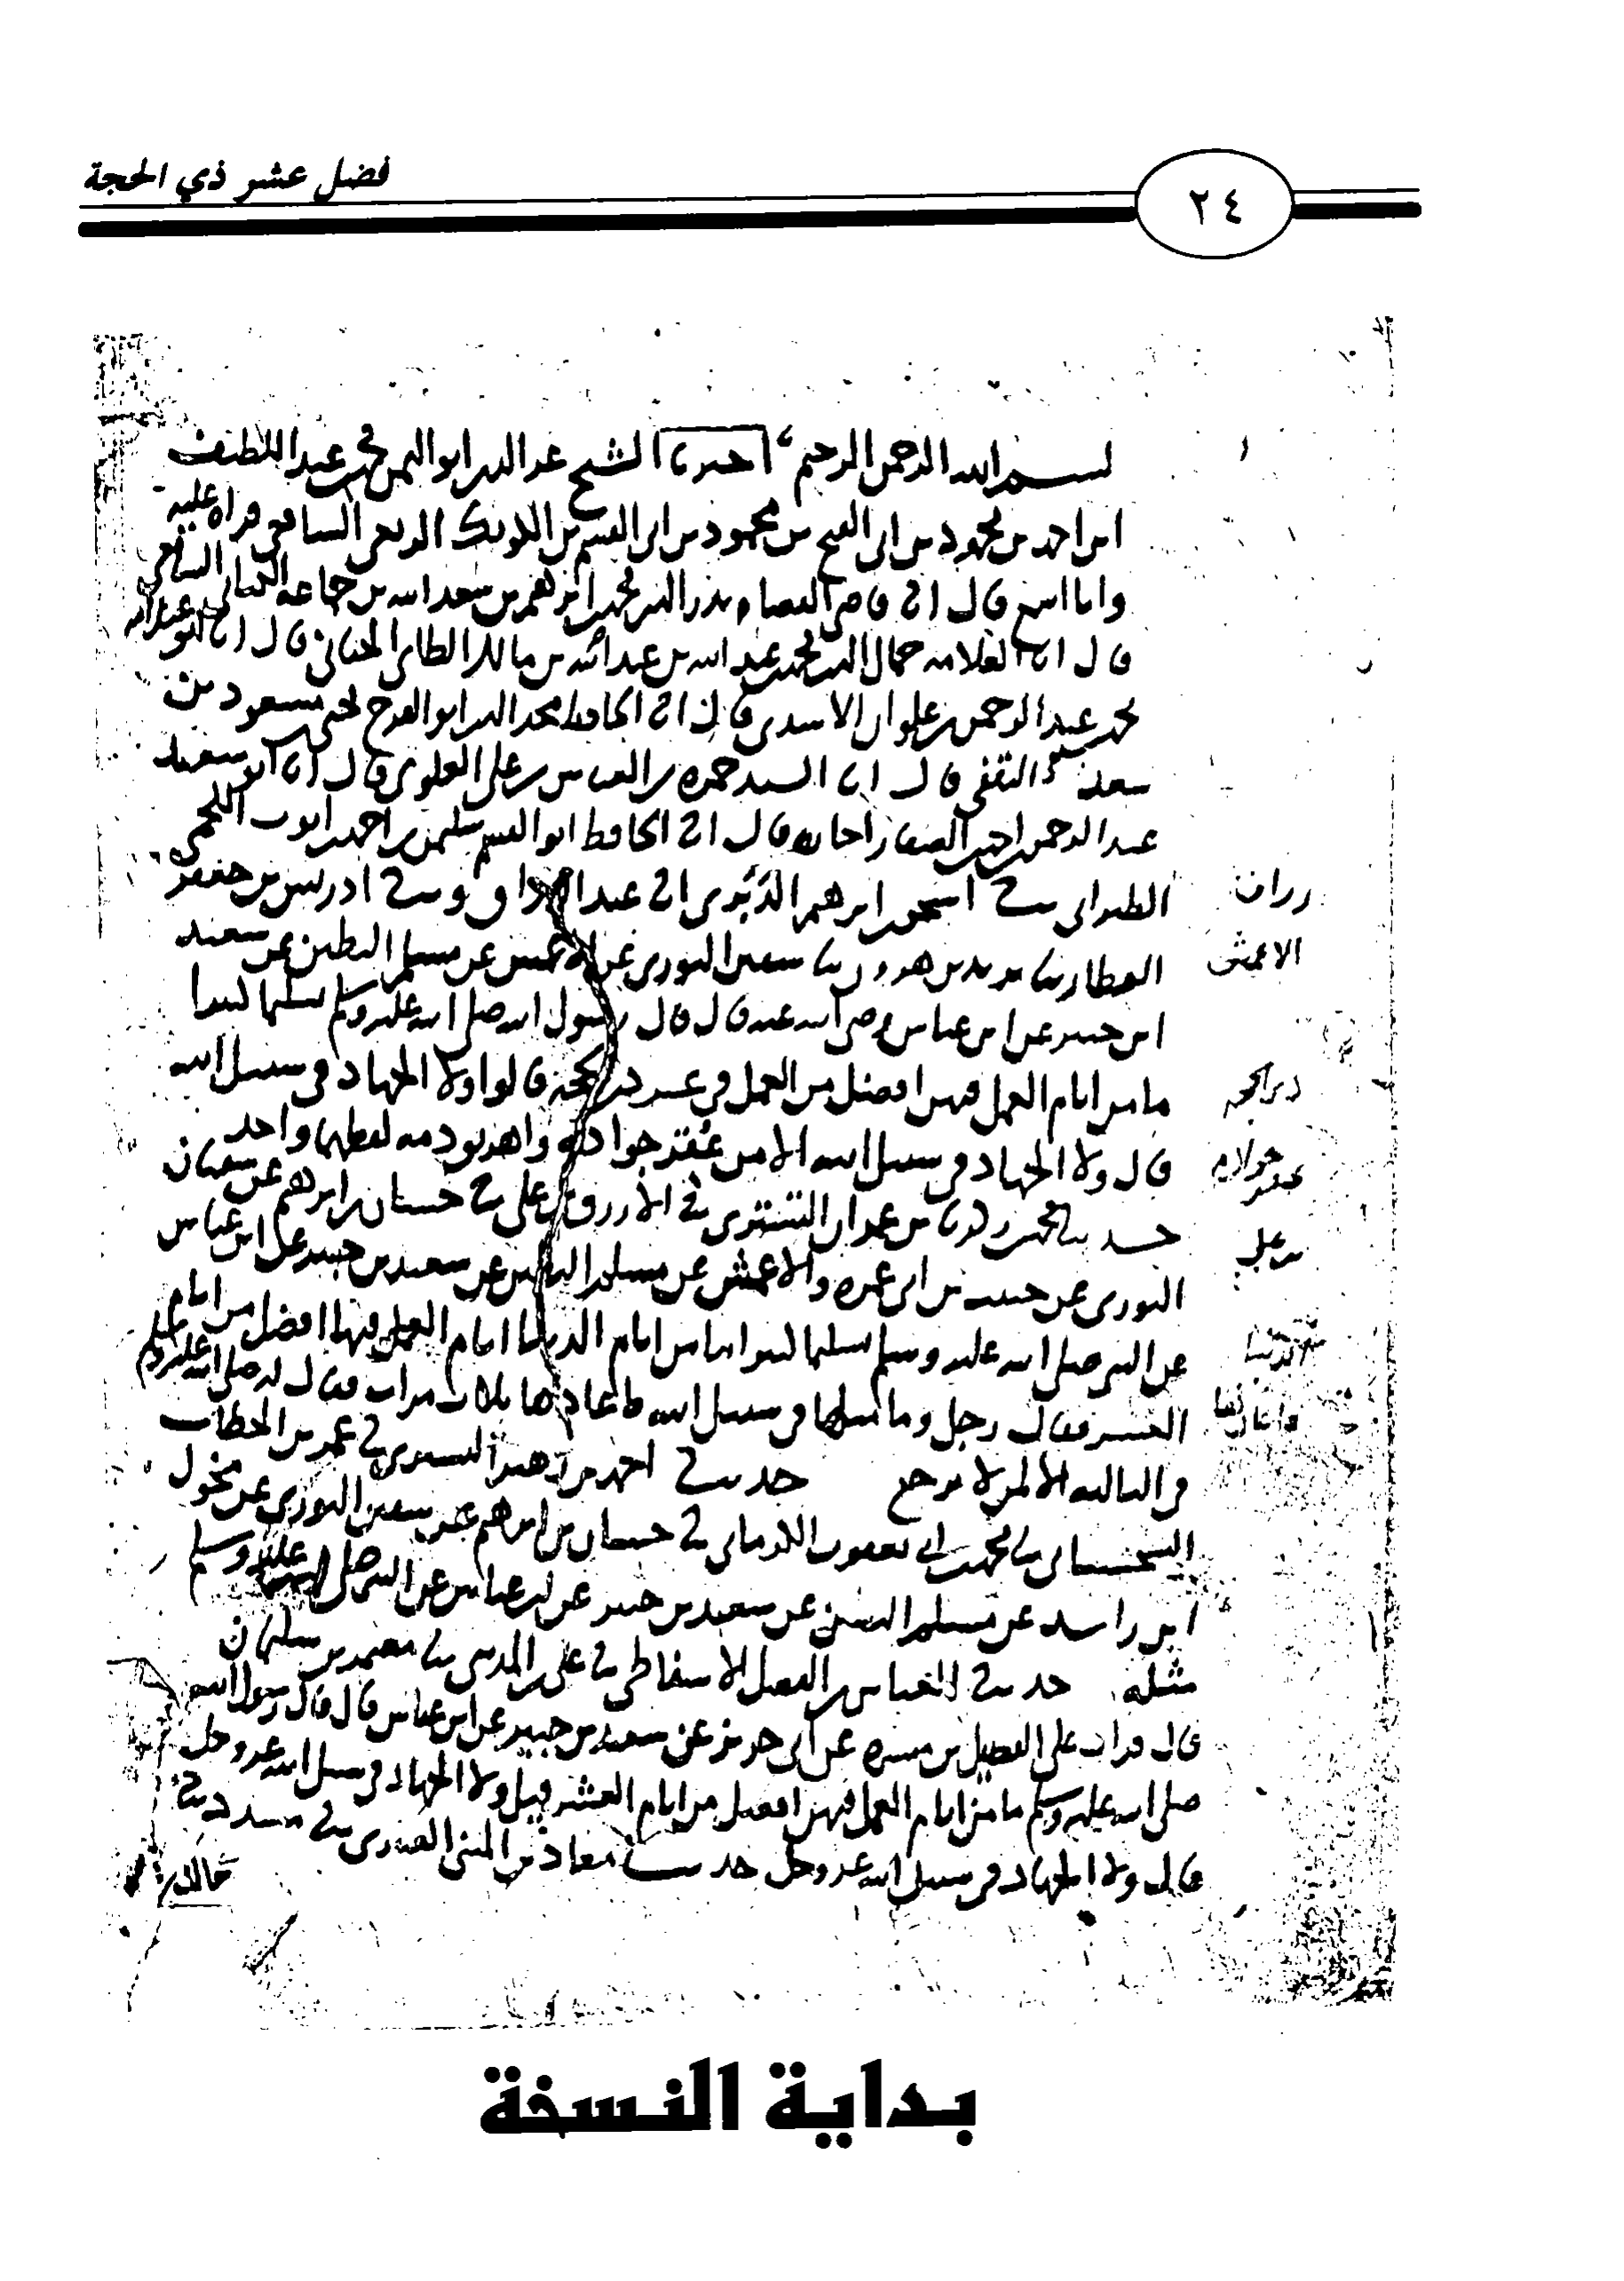 فضل عشر ذي الحجة
٢٤
بسم الله الرحمن الرحيم اخبرنا الشيخ عز الدين ابو اليمن محمد بن عبد اللطيف
ابن احمد بن محمود بن ابي الفتح بن محمود بن ابي القسم بن الكويك الربعي الشافعي قراه عليه
وانا اسمع قال انا قاضي القضاه بدر الدين محمد بن ابرهيم بن سعد الله بن جماعه الكناني الشافعي
قال انا العلامه جمال الدين محمد بن عبد الله بن عبد الله بن مالك الطائي الجياني قال انا ابو عبد الله
محمد بن عبد الرحمن بن علوان الاسدي قال انا الحافظ مجد الدين ابو الفرج يحيى بن مسعود بن
سعد الثقفي قال انا السيد حمزه بن العباس بن علي العلوي قال انا ابو سعيد
عبد الرحمن بن احمد الصفار قال انا الحافظ ابو القسم سليمن بن احمد بن ايوب اللخمي
الطبراني ثنا اسحق بن ابرهيم الدبري انا عبد الرزاق وثنا ادريس بن جعفر
العطار ثنا يزيد بن هرون ثنا سفين الثوري عن الاعمش عن مسلم البطين عن سعيد
ابن جبير عن ابن عباس رضي الله عنه قال قال رسول الله صلى الله عليه وسلم تسليما كثيرا
ما من ايام العمل فيهن افضل من العمل في عشر ذي الحجه قالوا ولا الجهاد في سبيل الله
قال ولا الجهاد في سبيل الله الا من عقر جواده واهريق دمه لفظهما واحد
حدثنا محمد بن عمران التستري ثنا الازرق بن علي ثنا حسان بن ابرهيم عن سفيان
الثوري عن حبيب بن ابي عمره والاعمش عن مسلم البطين عن سعيد بن جبير عن ابن عباس
عن النبي صلى الله عليه وسلم تسليما كثيرا ما من ايام الدنيا ايام العمل فيها افضل من ايام
العشر فقال رجل وما مثلها في سبيل الله فاعادها ثلاث مرات فقال له صلى الله عليه وسلم
في الثالثه الا لمن لا يرجع حدثنا احمد بن زهير التستري ثنا عمر بن الخطاب
السجستاني ثنا محمد بن ابي يعقوب الكرماني ثنا حسان بن ابرهيم عن سفين الثوري عن مخول
ابن راشد عن مسلم البطين عن سعيد بن جبير عن ابن عباس عن النبي صلى الله عليه وسلم
مثله حدثنا العباس بن الفضل الاسفاطي ثنا علي بن المديني ثنا معتمر بن سليمان
قال قرات على الفضيل بن ميسره عن ابي حريز عن سعيد بن جبير عن ابن عباس قال قال رسول الله
صلى الله عليه وسلم ما من ايام العمل فيهن افضل من ايام العشر قيل ولا الجهاد في سبيل الله عز وجل
قال ولا الجهاد في سبيل الله عز وجل حدثنا معاذ بن المثنى العنبري ثنا مسدد ثنا
خالد
الاعمش
ذي الحجه
عقر جواده
بن علي
الدنيا
بداية النسخة